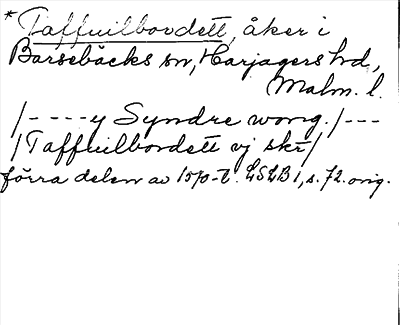 *Taffuilbordett, åker i
Barsebäcks sn, Harjagers hd.,
Malm. l.
/----y Syndre wong./---
/Taffuilbordett vj skr/
förra delen av 1570-t. LSLB 1, s. 72. orig.